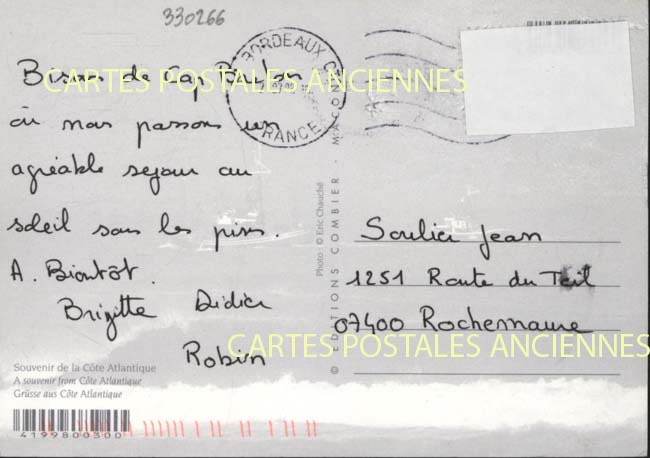 330266
Bisous de Cap
où nous passons un
agréable sejour au
soleil sous les pins.
A. Bientôt.
Brigitte Didier
Robin
CARTES POSTALES ANCIENNES
BORDEAUX
FRANCE
Photo : © Eric Chauché
© EDITIONS COMBIER - MACON
Soulier Jean
1251 Route du Teil
07400 Rochemaure
CARTES POSTALES ANCIENNES
Souvenir de la Côte Atlantique
A souvenir from Côte Atlantique
Grüsse aus Côte Atlantique
4199800300